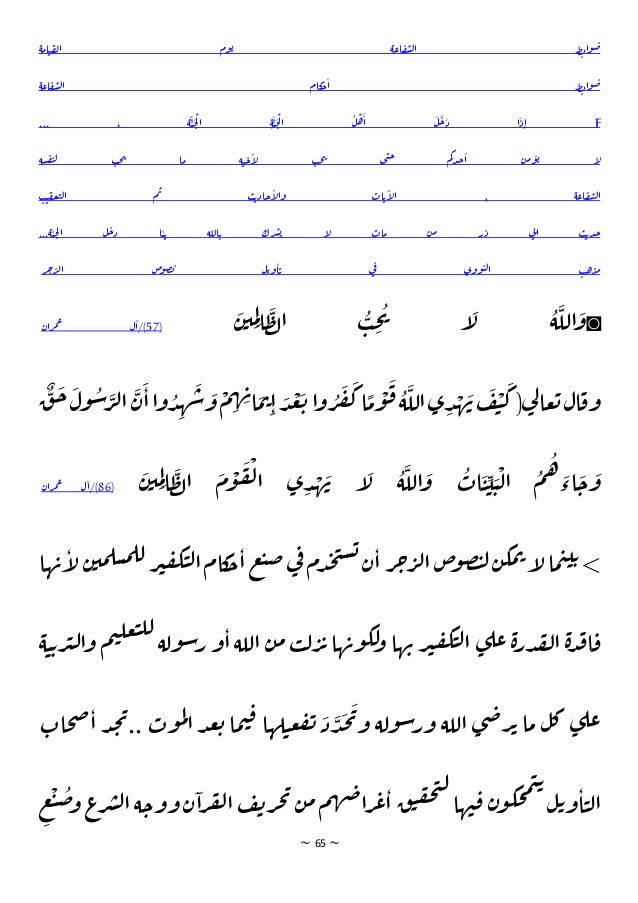 ضوابط الشفاعة يوم القيامة
ضوابط احكام الشفاعة
F إِذَا دَخَلَ أَهْلُ الْجَنَّةِ الْجَنَّةَ ، ...
لا يؤمن أحدكم حتى يحب لأخيه ما يحب لنفسه
الشفاعة , الآيات والأحاديث ثم التعقيب
حديث ابي ذر من مات لا يشرك بالله يئا دخل الجنة...
مذهب النووي في تأويل نصوص الزجر
◙وَاللَّهُ لَا يُحِبُّ الظَّالِمِينَ (57)/آل عمران
وقال تعالي(كَيْفَ يَهْدِي اللَّهُ قَوْمًا كَفَرُوا بَعْدَ إِيمَانِهِمْ وَشَهِدُوا أَنَّ الرَّسُولَ حَقٌّ
وَجَاءَهُمُ الْبَيِّنَاتُ وَاللَّهُ لَا يَهْدِي الْقَوْمَ الظَّالِمِينَ (86)/آل عمران
< بينما لا يمكن لنصوص الزجر أن تستخدم في صنع احكام التكفير للمسلمين لأنها
فاقدة القدرة علي التكفير بها ولكونها نزلت من الله أو رسوله للتعليم والتربية
علي كل ما يرضي الله ورسوله وتَحَدَّدَ تفعيلها فيما بعد الموت .. تجد أصحاب
التأويل يتمحكون فيها لتحقيق أغراضهم من تحريف القرآن ووجهة الشرع وصُنْعِ
~ 65 ~